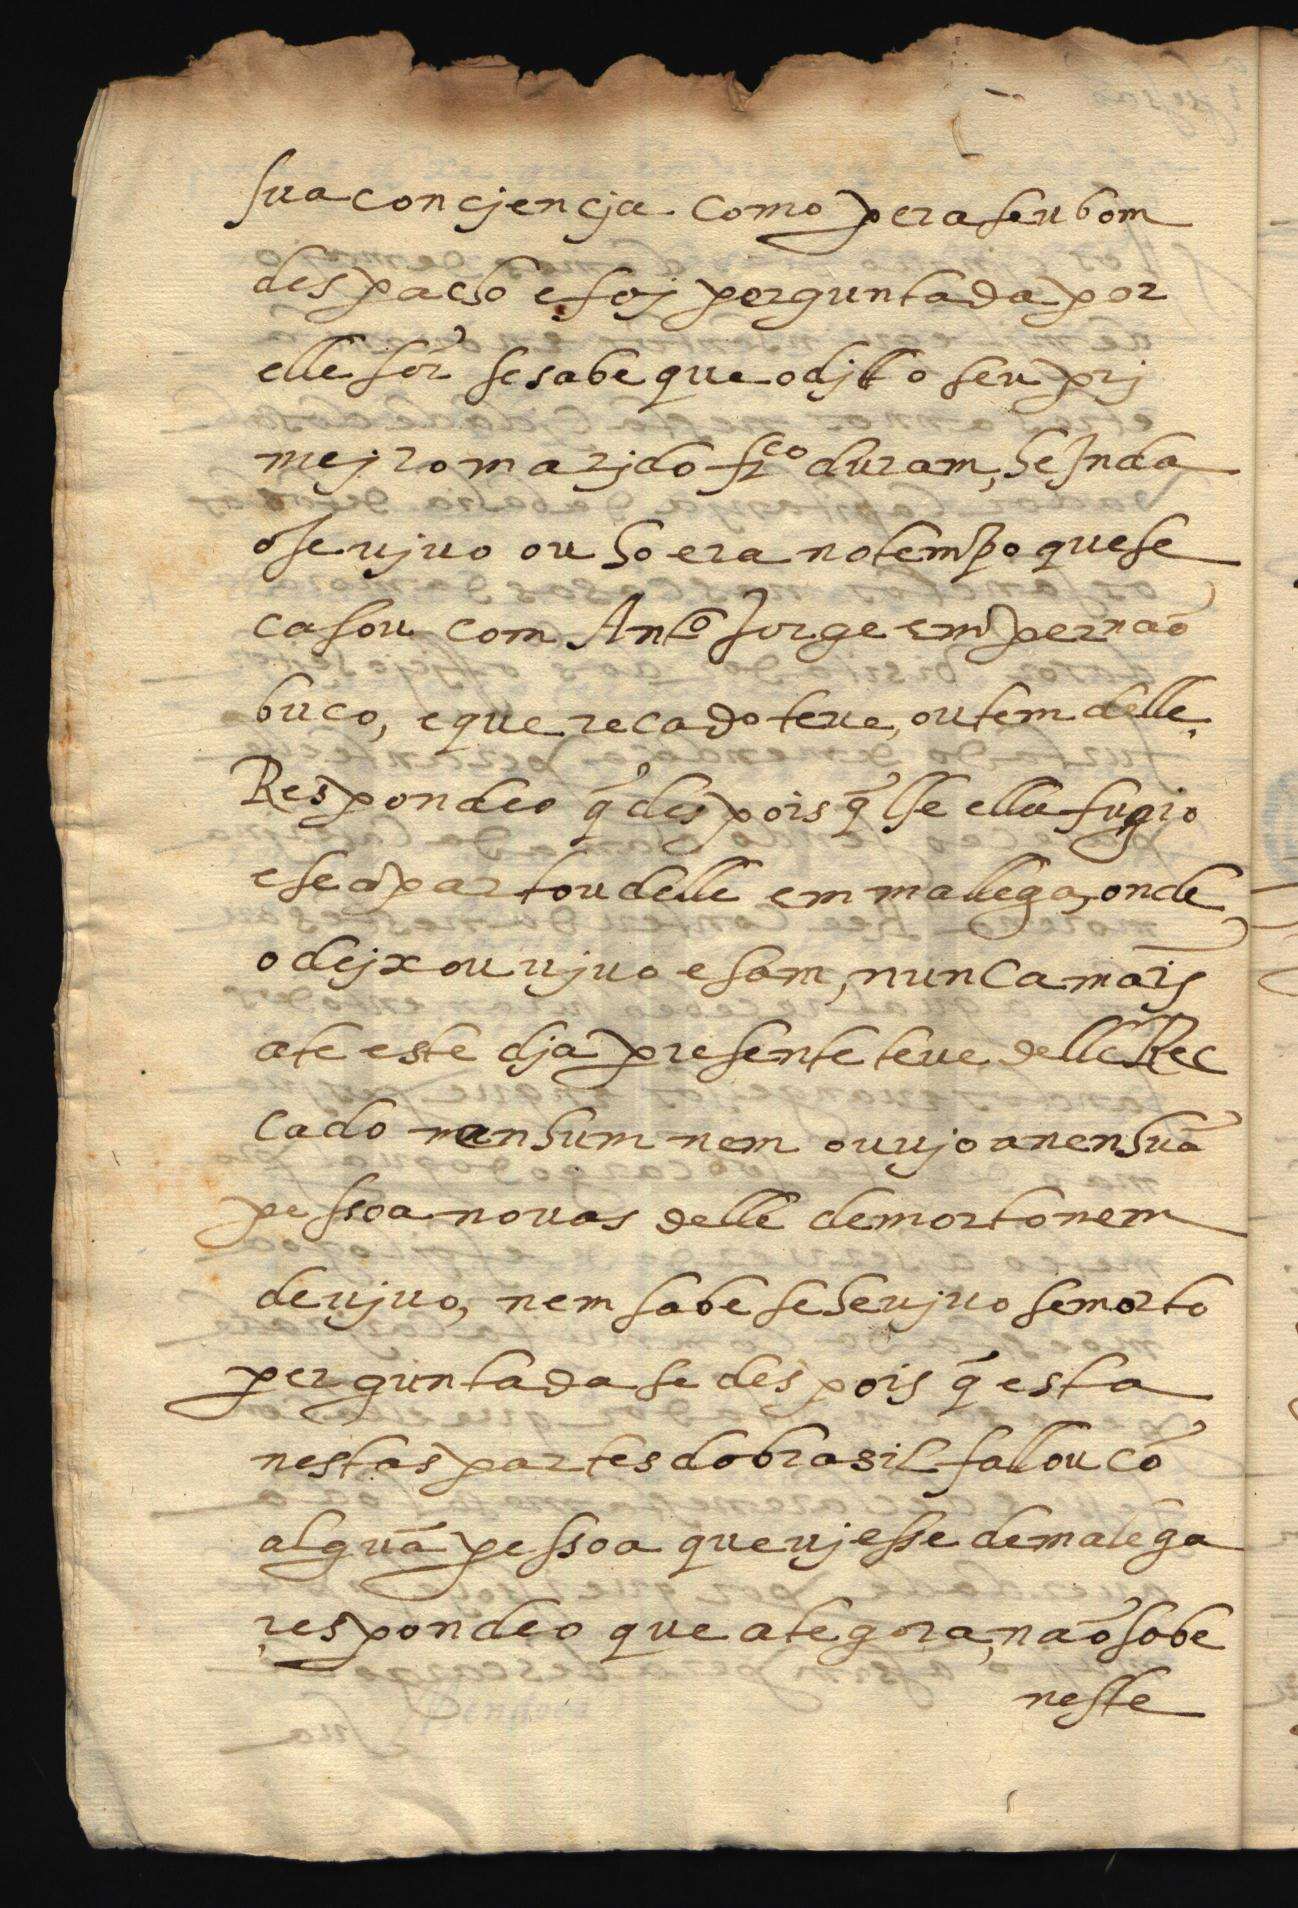 sua concjencja como pera seu bom
despacho e foj perguntada por
elle sor se sabe que o djtto seu prj
mejro marjdo frco duram, he Jnda
oje ujuo ou ho era no tempo que se
casou com Anto Jorge em pernão
buco, e que recado teue, ou tem delle.
Respondeo q̃ despois q̃ lhe ella fugio
e se apartou delle em mallega, onde
o dejxou ujuo e sam, nunca mais
ate este dja presente teue delle Rec
cado nenhum nem ouujo a nenhuã
pessoa nouas delle de morto nem
de ujuo, nem sabe se he ujuo se morto
perguntada se despois q̃ esta
nestas partes do brasil fallou cõ
alguã pessoa que ujesse de malega
respondeo que ategora, não sobe
neste